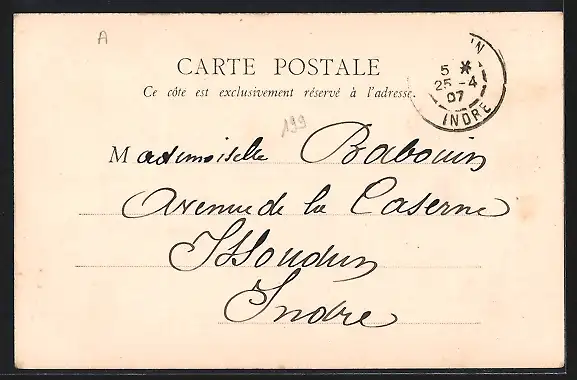 A
CARTE POSTALE
Ce côte est exclusivement réservé à l'adresse.
5 *
25 -4
07
INDRE
199
Mademoiselle Babouin
Avenue de la Caserne
Issoudun
Indre